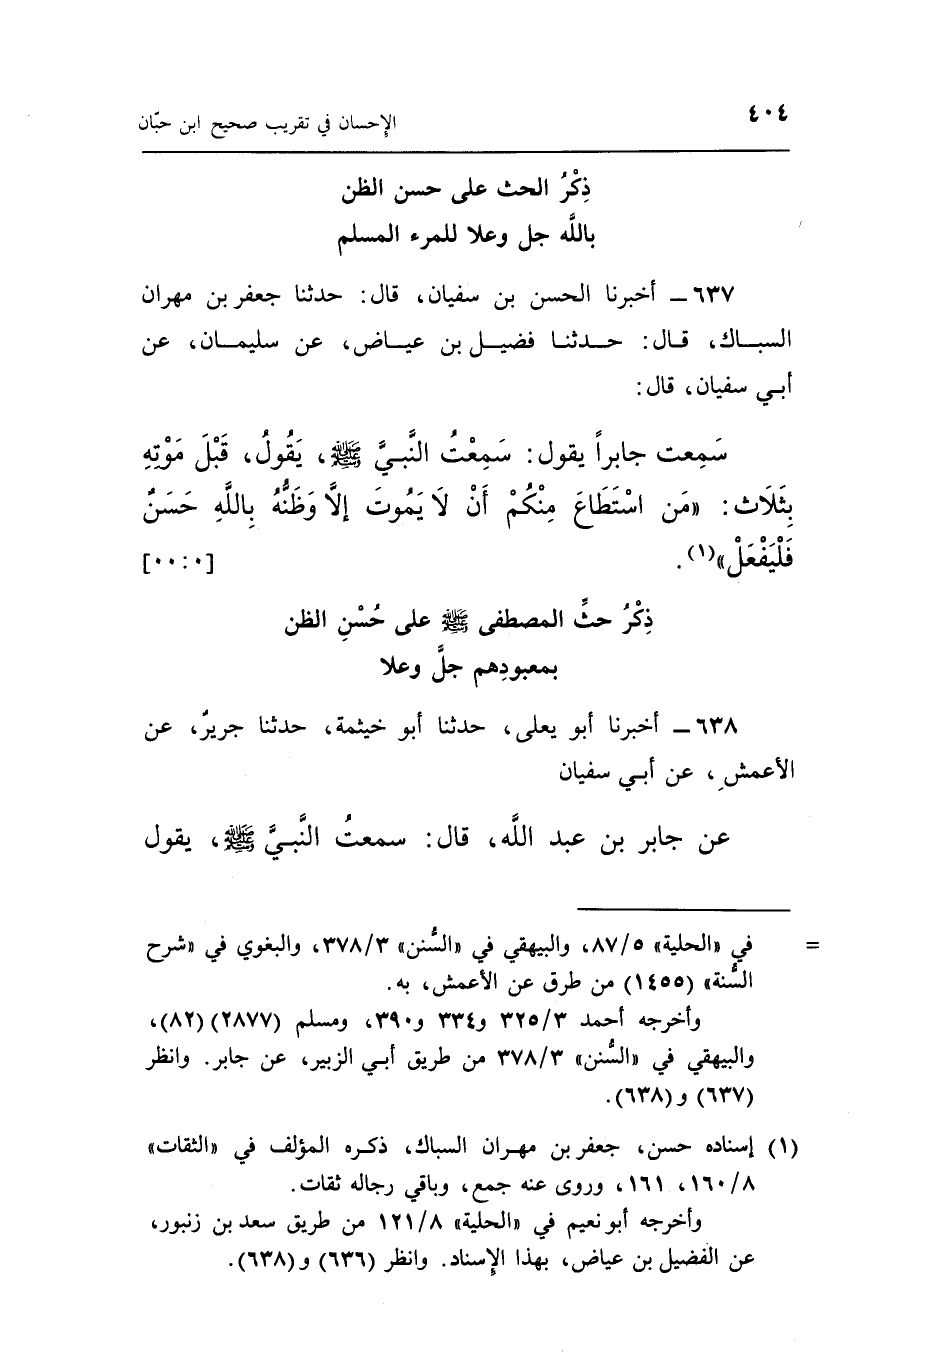 ٤٠٤ الإحسان في تقريب صحيح ابن حبّان
ذِكْرُ الحث على حسن الظن
باللَّه جل وعلا للمرء المسلم
٦٣٧ ـ أخبرنا الحسن بن سفيان، قال: حدثنا جعفر بن مهران
السبـاك، قـال: حـدثنـا فضيـل بن عيـاض، عن سليمـان، عن
أبـي سفيان، قال:
سَمِعت جابراً يقول: سَمِعْتُ النَّبـيَّ ﷺ، يَقُولُ، قَبْلَ مَوْتِهِ
بِثَلَاث: «مَن اسْتَطَاعَ مِنْكُمْ أَنْ لَا يَمُوتَ إلاَّ وَظَنُّهُ بِاللَّهِ حَسَنٌ
فَلْيَفْعَلْ»(١). [٠:٠٠]
ذِكْرُ حثِّ المصطفى ﷺ على حُسْنِ الظن
بمعبودِهم جلَّ وعلا
٦٣٨ ـ أخبرنا أبو يعلى، حدثنا أبو خيثمة، حدثنا جريرٌ، عن
الأعمشِ، عن أبـي سفيان
عن جابر بن عبد اللَّه، قال: سمعتُ النَّبـيَّ ﷺ، يقول
= في «الحلية» ٨٧/٥، والبيهقي في «السُّنن» ٣٧٨/٣، والبغوي في «شرح
السُّنة» (١٤٥٥) من طرق عن الأعمش، به.
وأخرجه أحمد ٣٢٥/٣ و٣٣٤ و٣٩٠، ومسلم (٢٨٧٧) (٨٢)،
والبيهقي في «السُّنن» ٣٧٨/٣ من طريق أبـي الزبير، عن جابر. وانظر
(٦٣٧) و(٦٣٨).
(١) إسناده حسن، جعفر بن مهـران السباك، ذكـره المؤلف في «الثقات»
١٦٠/٨، ١٦١، وروى عنه جمع، وباقي رجاله ثقات.
وأخرجه أبو نعيم في «الحلية» ١٢١/٨ من طريق سعد بن زنبور،
عن الفضيل بن عياض، بهذا الإسناد. وانظر (٦٣٦) و(٦٣٨).